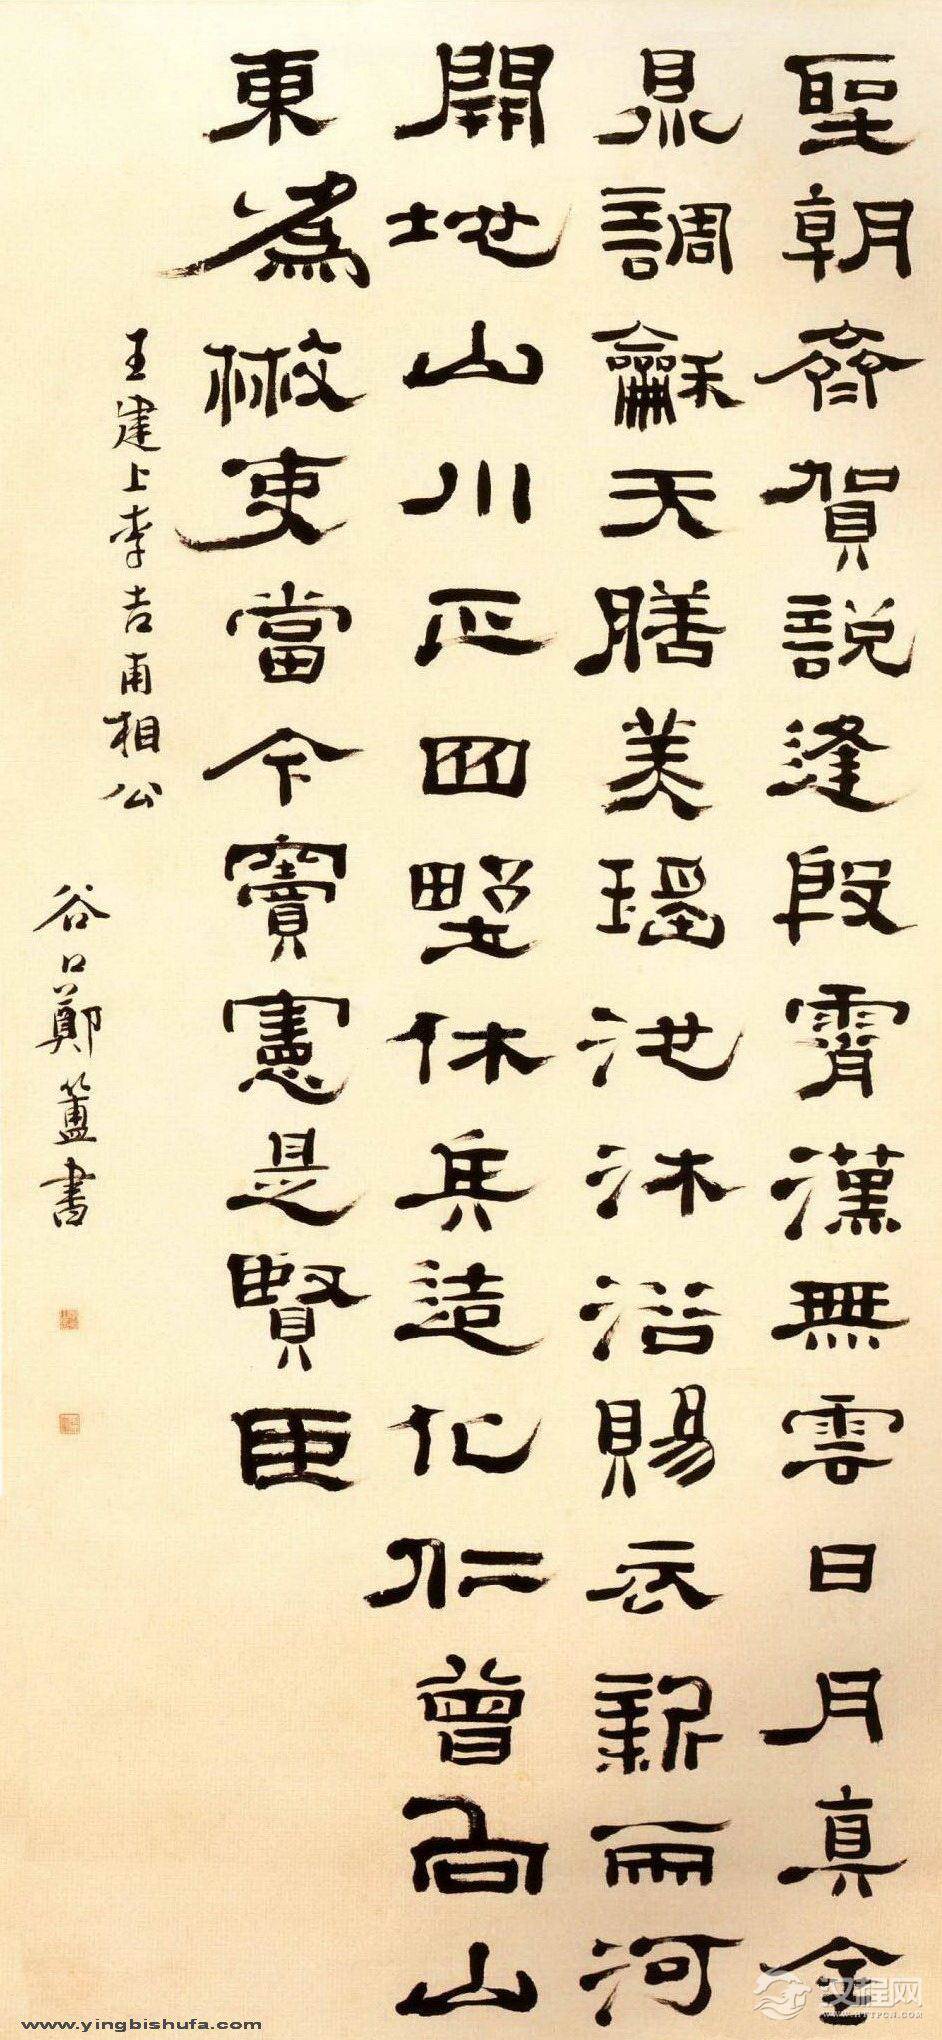 聖朝齊賀說逢殷霄漢無雲日月真金
鼎調龢天膳美瑶池沐浴賜衣新兩河
開地山川正四野休兵造化仁曾向山
東為㪚吏當今竇憲是賢臣
王建上李吉甫相公
谷口鄭簠書
www.yingbishufa.com
汉程网
WWW.HTTPCN.COM